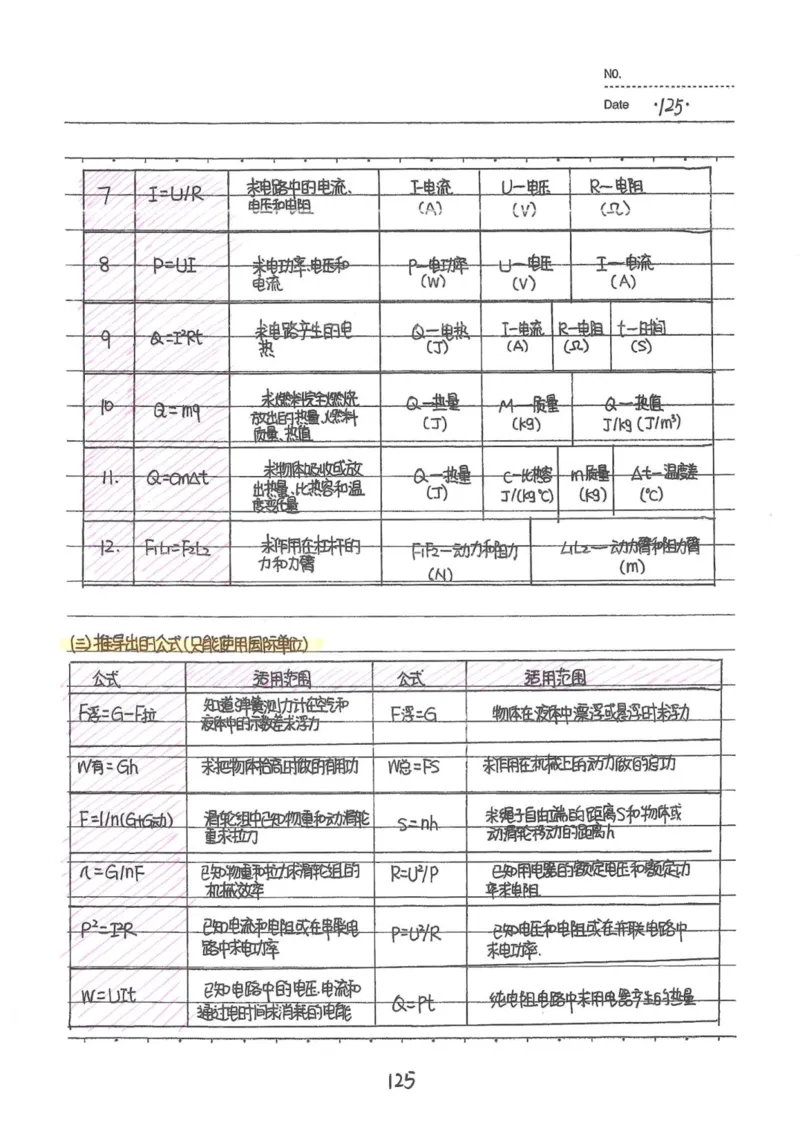 NO.
Date ·125·
7 I=U/R 求电路中的电流、 I-电流 U—电压 R—电阻
电压和电阻 (A) (V) (Ω)
8 P=UI 求电功率、电压和 P—电功率 U—电压 I—电流
电流 (W) (V) (A)
9 Q=I²Rt 求电路产生的电 Q—电热 I-电流 R—电阻 t—时间
热 (J) (A) (Ω) (S)
10 Q=mq 求燃料完全燃烧 Q—热量 M—质量 Q—热值
放出的热量、燃料 (J) (kg) J/kg (J/m³)
质量、热值
11. Q=cmΔt 求物体吸收或放 Q—热量 c—比热容 m质量 Δt—温度差
出热量、比热容和温 (J) J/(kg℃) (kg) (℃)
度变化量
12. F₁L₁=F₂L₂ 求作用在杠杆的 F₁F₂—动力和阻力 L₁L₂—动力臂和阻力臂
力和力臂 (N) (m)
(三)推导出的公式(只能使用国际单位)
公式 适用范围 公式 适用范围
F浮=G-F拉 知道弹簧测力计在空气和 F浮=G 物体在液体中漂浮或悬浮时求浮力
液体中的示数差求浮力
W有=Gh 求把物体抬高时做的有用功 W总=FS 求作用在机械上的动力做的总功
F=1/n(G+G动) 滑轮组中已知物重和动滑轮 S=nh 求绳子自由端的距离S和物体或
重求拉力 动滑轮移动的距离h
η=G/nF 已知物重和拉力求滑轮组的 R=U²/P 已知用电器的额定电压和额定功
机械效率 率求电阻
P²=I²R 已知电流和电阻或在串联电 P=U²/R 已知电压和电阻或在并联电路中
路中求电功率 求电功率.
W=UIt 已知电路中的电压、电流和 Q=Pt 纯电阻电路中求用电器产生的热量
通过电时间求消耗的电能
125